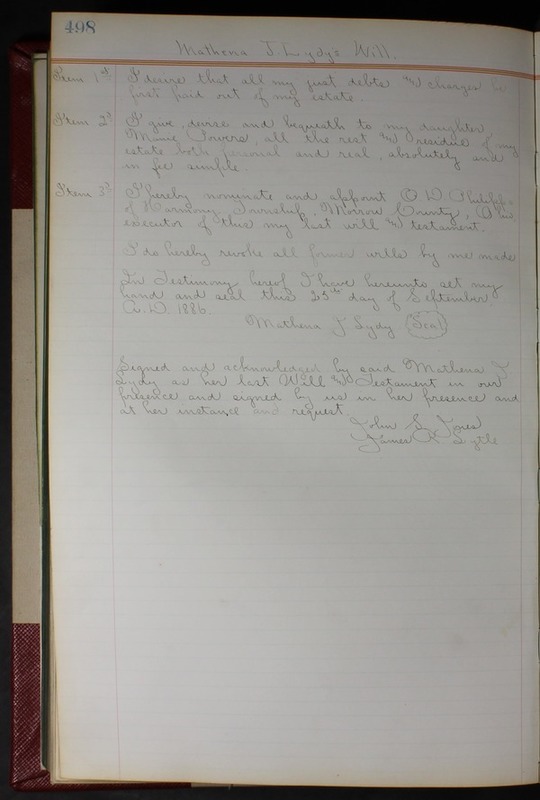 498
Mathena J. Lydys Will.
Item 1st I desire that all my just debts and charges be
first paid out of my estate.
Item 2d I give, devise and bequeath to my daughter
Mamie Powers, all the rest and residue of my
estate both personal and real, absolutely and
in fee simple
Item 3d I hereby nominate and appoint O. W.
of Harmony Township, Morrow County, Ohio
executor of this my last will and testament.
I do hereby revoke all former wills by me made
In Testimony hereof I have hereunto set my
hand and seal this 25th day of September
A. D. 1886.
Mathena J Lydy (Seal)
Signed and acknowledged by said Mathena J
Lydy as her last Will and Testament in our
presence and signed by us in her presence and
at her instance and request
John S. Jones
James K Lytle